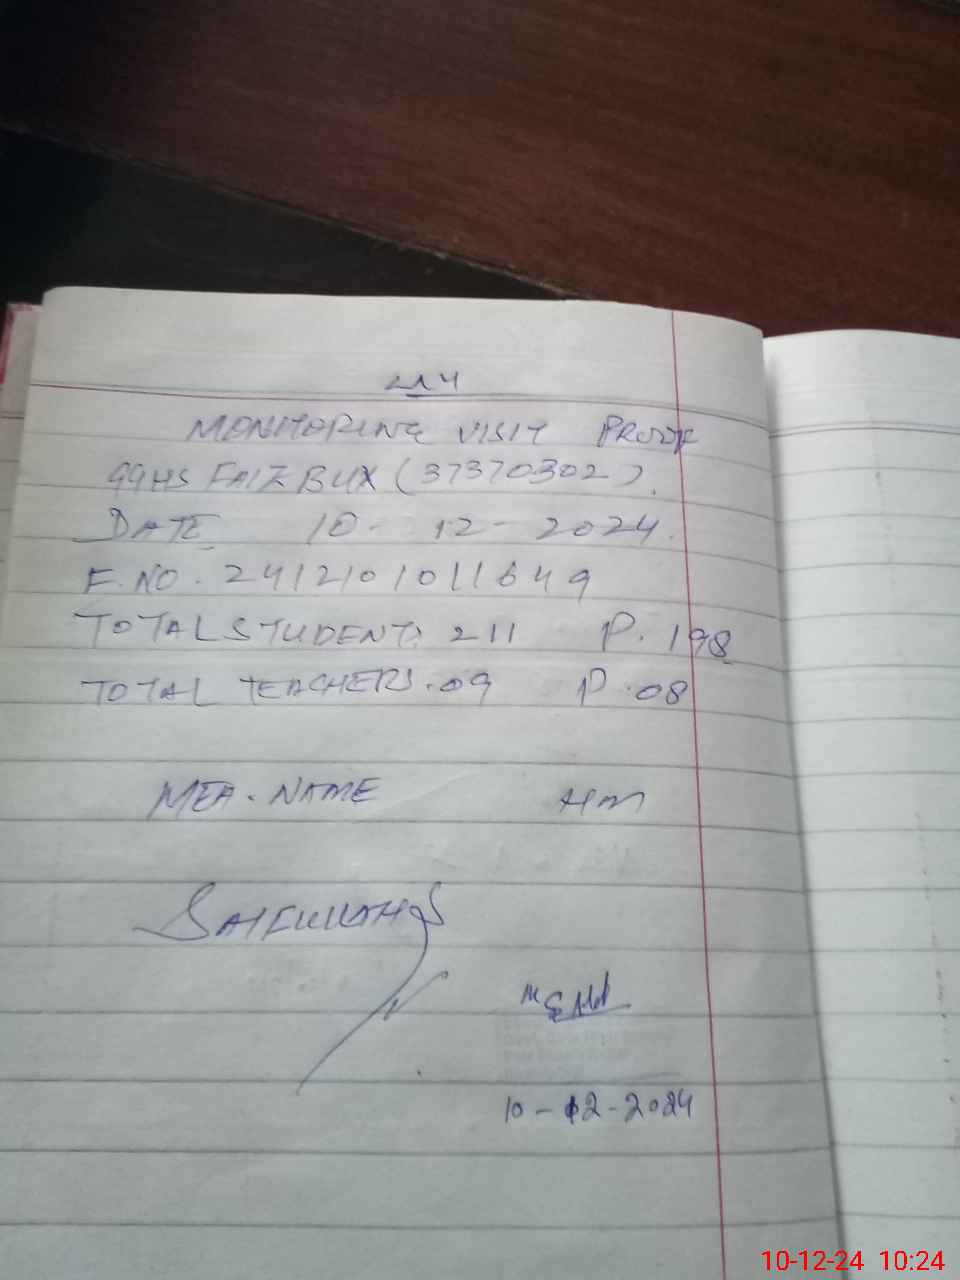 MONITORING VISIT PROOF
GGHS FAIZ BUX (37370302).
DATE 10-12-2024.
F.NO. 2412101011649
TOTAL STUDENT. 211 P. 198
TOTAL TEACHERS. 09 P. 08
MEA. NAME HM
SAIFULLAH
10-12-2024
10-12-24 10:24